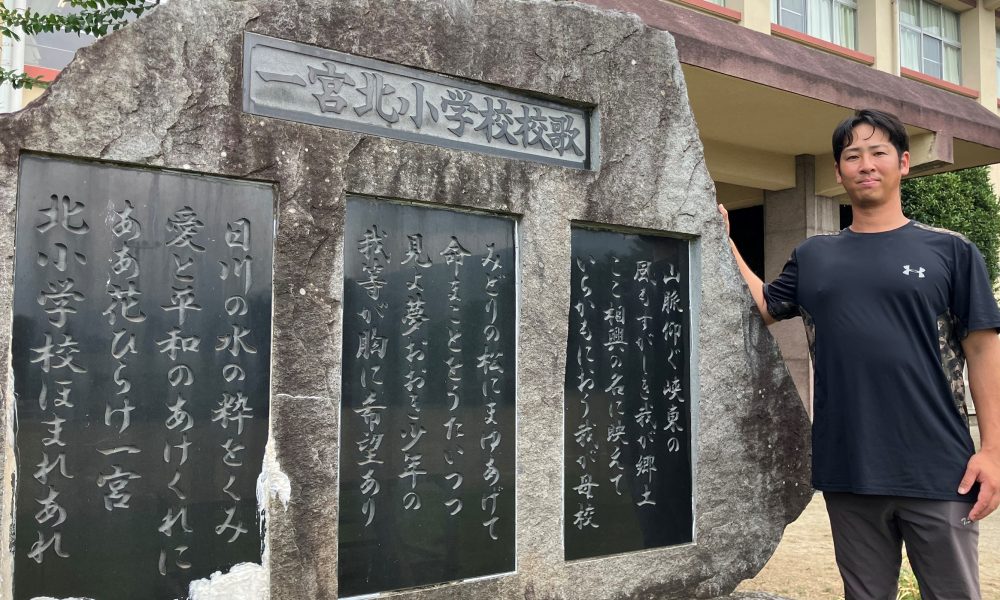 一宮北小学校校歌
山脈仰ぐ 峡東の
風もすがしき我が郷土
ここ相興の名に映えて
いらかもにおう我が母校
みどりの松にまゆあげて
命まことをうたいつつ
見よ夢おおき少年の
我等が胸に希望あり
日川の水の粋をくみ
愛と平和のあけくれに
ああ花ひらけ一宮
北小学校ほまれあれ